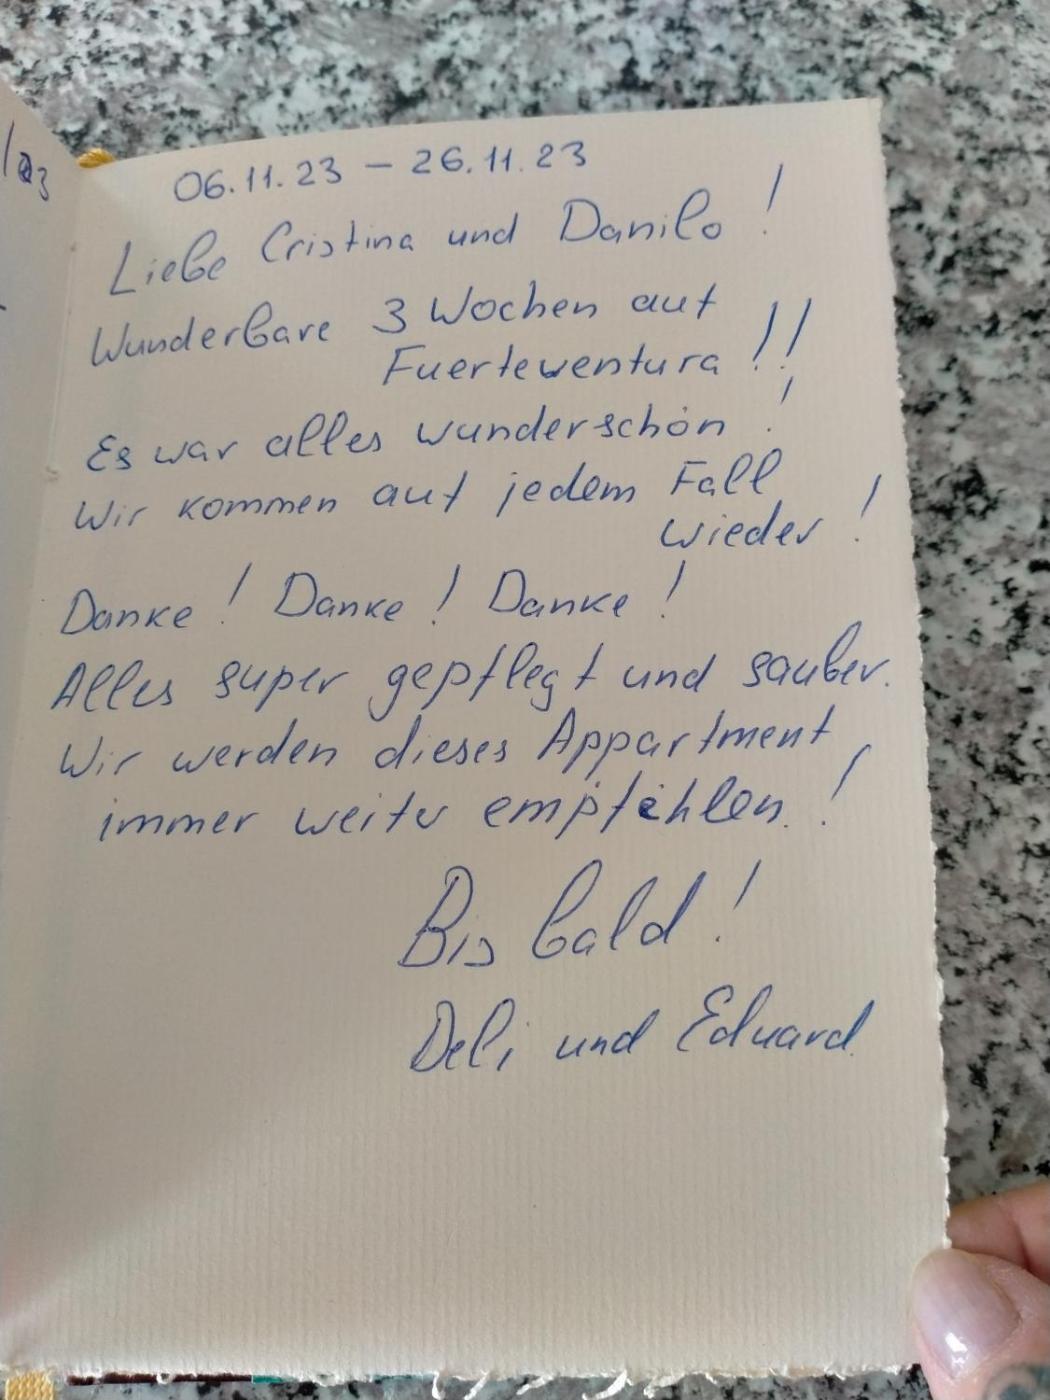 06.11.23 – 26.11.23
Liebe Cristina und Danilo!
Wunderbare 3 Wochen auf
Fuerteventura!!
Es war alles wunderschön!
Wir kommen auf jedem Fall
wieder!
Danke! Danke! Danke!
Alles super gepflegt und sauber.
Wir werden dieses Appartment
immer weiter empfehlen.!
Bis bald!
Deli und Eduard